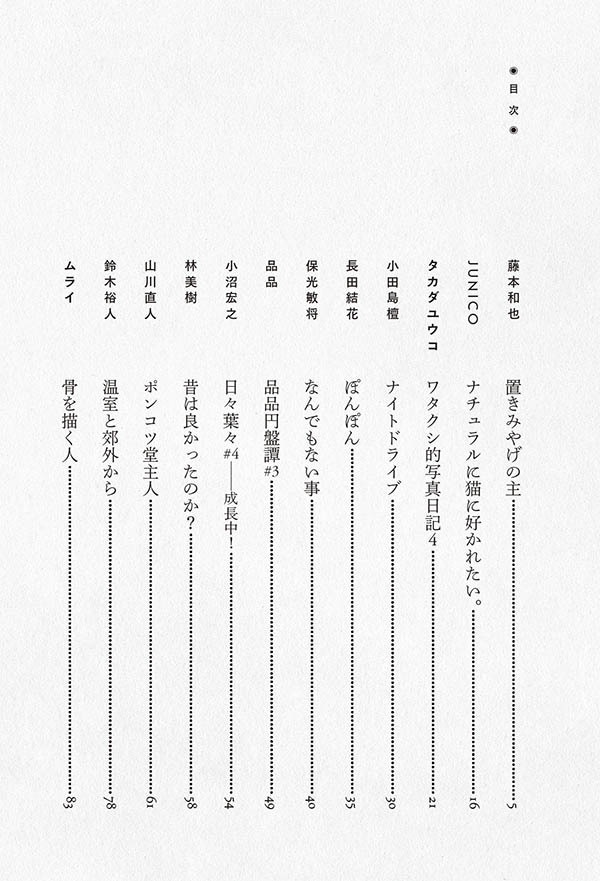 ◉目次◉
藤本和也 置きみやげの主 5
JUNICO ナチュラルに猫に好かれたい。 16
タカダユウコ ワタクシ的写真日記4 21
小田島檀 ナイトドライブ 30
長田結花 ぽんぽん 35
保光敏将 なんでもない事 40
品品 品品円盤譚#3 49
小沼宏之 日々葉々#4──成長中! 54
林美樹 昔は良かったのか? 58
山川直人 ポンコツ堂主人 61
鈴木裕人 温室と郊外から 78
ムライ 骨を描く人 83